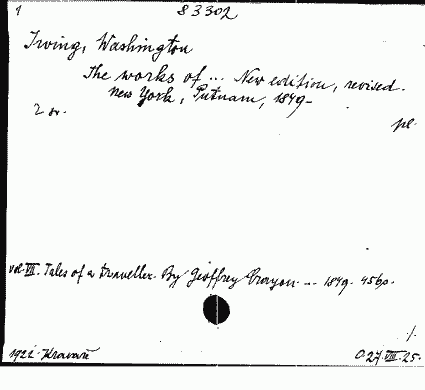 1 83302
Irving, Washington
The works of ... New edition, revised.
New York, Putnam, 1849-
2 sv.
pl.
vol. VII. Tales of a traveller. By Geoffrey Crayon ... 1849. 456p.
1922. Kravaře
O.27.VIII.25.